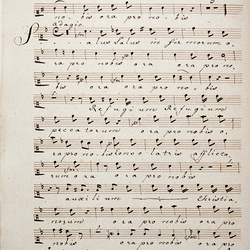 no_bis ora pro no_bis
adagio
Salus in fir morum o_
ra pro nobis ora ora pro no_
bis Refugium Refugium
peccatorum ora pro nobis o_
ra pro no_bis con so latrix afflicto_
rum ora ora pro nobis
auxilium Christia_
norum ora pro nobis ora
pro nobis ora ora pro no_